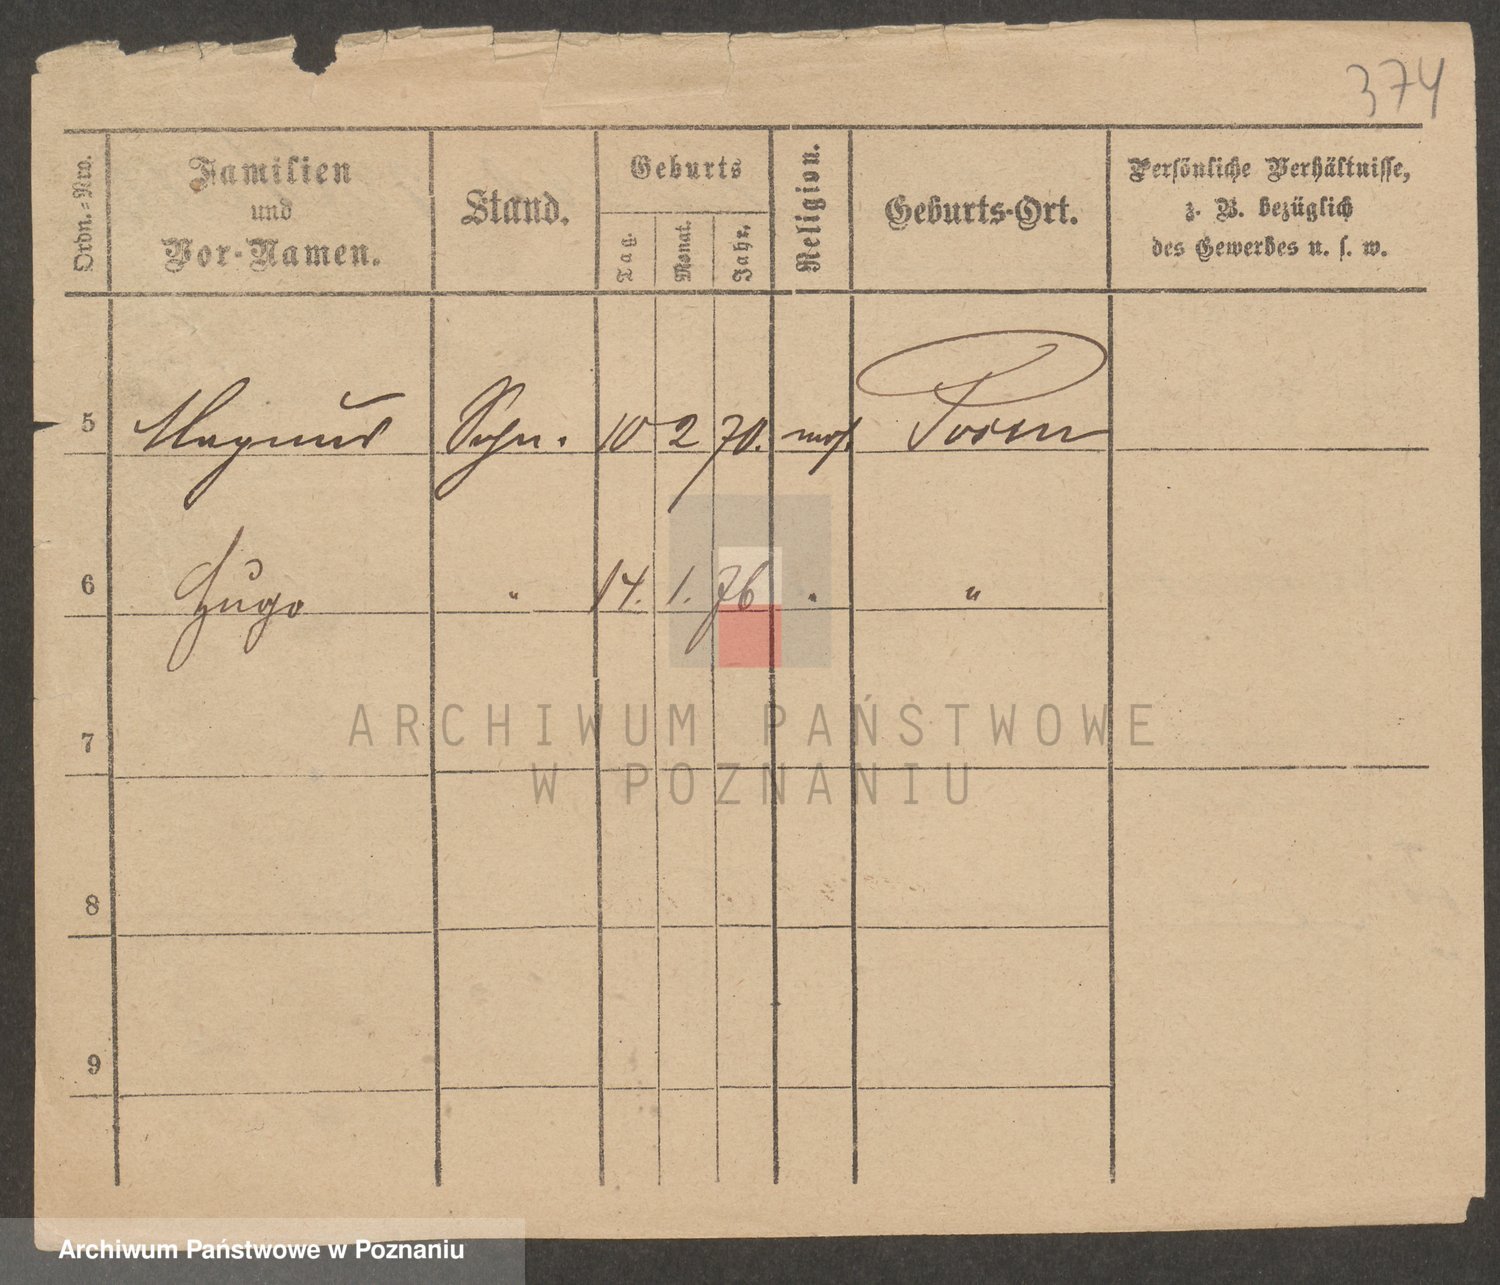 374
Ordn.-Nro.
Familien
und
Vor-Namen.
Stand.
Geburts
Tag.
Monat.
Jahr.
Religion.
Geburts-Ort.
Persönliche Verhältnisse,
z. B. bezüglich
des Gewerbes u. s. w.
5 Magnus Sohn. 10 2 70. mos. Posen
6 Hugo " 14. 1. 76 " "
7
8
9
ARCHIWUM PAŃSTWOWE
W POZNANIU
Archiwum Państwowe w Poznaniu